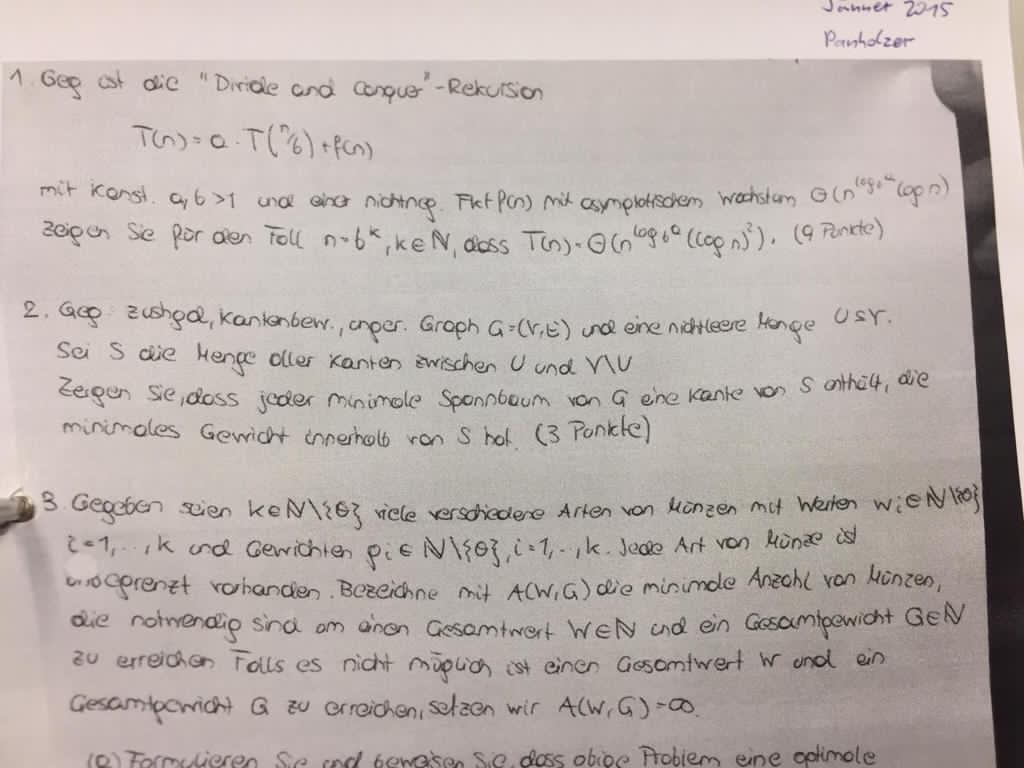 Jänner 2015
Panholzer
1. Geg ist die "Divide and Conquer"-Rekursion
T(n) = a · T(n/b) + f(n)
mit konst. a,b >1 und einer nichtneg. Fkt f(n) mit asymptotischem Wachstum Θ(n^{log_b a} log n)
Zeigen Sie für den Fall n=b^k, k∈ℕ, dass T(n)=Θ(n^{log_b a} (log n)^2). (9 Punkte)
2. Geg: zushgd, kantenbew., unger. Graph G=(V,E) und eine nichtleere Menge U⊆V.
Sei S die Menge aller Kanten zwischen U und V\U
Zeigen Sie, dass jeder minimale Spannbaum von G eine Kante von S enthält, die
minimales Gewicht innerhalb von S hat. (3 Punkte)
3. Gegeben seien k∈ℕ\{0} viele verschiedene Arten von Münzen mit Werten w_i∈ℕ\{0}
i=1,..,k und Gewichten g_i∈ℕ\{0}, i=1,..,k. Jede Art von Münze ist
unbegrenzt vorhanden. Bezeichne mit A(W,G) die minimale Anzahl von Münzen,
die notwendig sind um einen Gesamtwert W∈ℕ und ein Gesamtgewicht G∈ℕ
zu erreichen Falls es nicht möglich ist einen Gesamtwert W und ein
Gesamtgewicht G zu erreichen, setzen wir A(W,G)=∞.
(a) Formulieren Sie und beweisen Sie, dass obige Problem eine optimale